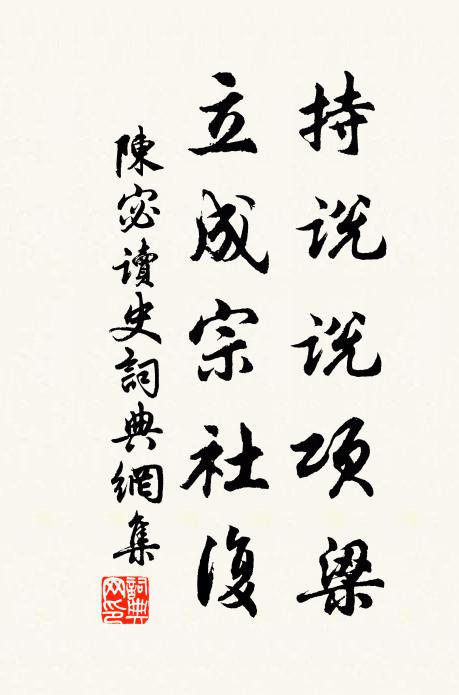 持说说项梁
立成宗社復
陳宓讀史詞典網集
詞典網印